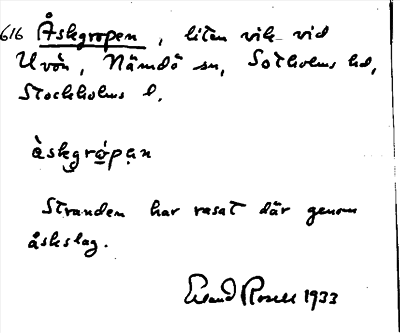 616 Åskgropen, liten vik vid
Uvön, Nämdö sn, Sotholms hd,
Stockholms l.
àskgrópạn
Stranden har rasat där genom
åskslag.
Rosell 1933